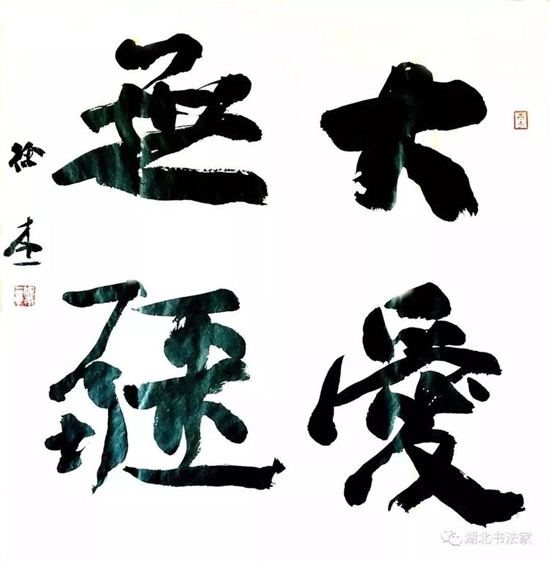 大愛
無疆
徐本一
湖北书法家